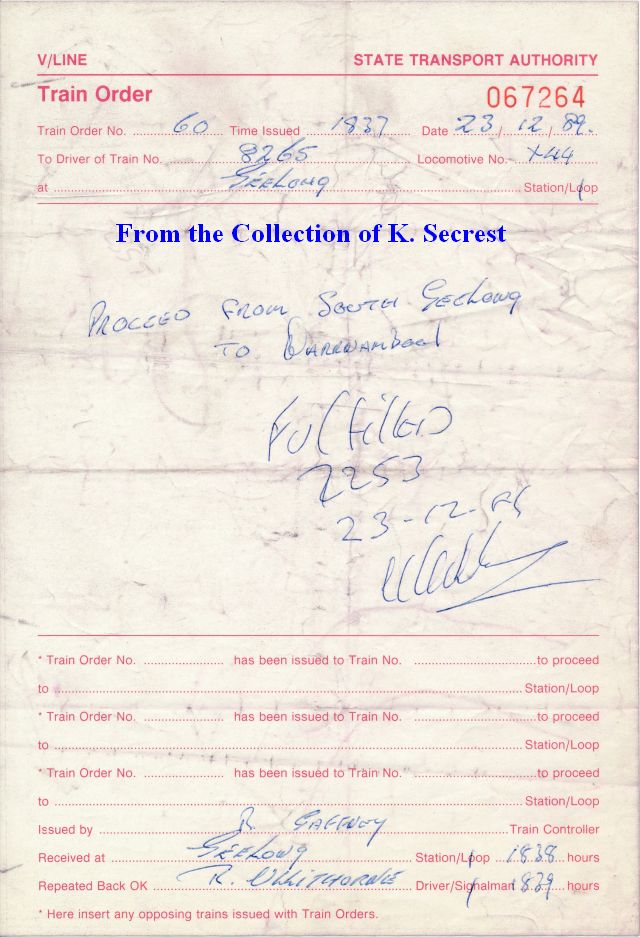 V/LINE STATE TRANSPORT AUTHORITY
Train Order 067264
Train Order No. 60 Time Issued 1837 Date 23/12/89.
To Driver of Train No. 8265 Locomotive No. X44
at GEELONG Station/Loop
From the Collection of K. Secrest
PROCEED FROM SOUTH GEELONG
TO WARRNAMBOOL
FULFILLED
2253
23-12-89
* Train Order No. has been issued to Train No. to proceed
to Station/Loop
* Train Order No. has been issued to Train No. to proceed
to Station/Loop
* Train Order No. has been issued to Train No. to proceed
to Station/Loop
Issued by R GAFFNEY Train Controller
Received at GEELONG Station/Loop 1838 hours
Repeated Back OK R. WHITHORNE Driver/Signalman 1839 hours
* Here insert any opposing trains issued with Train Orders.